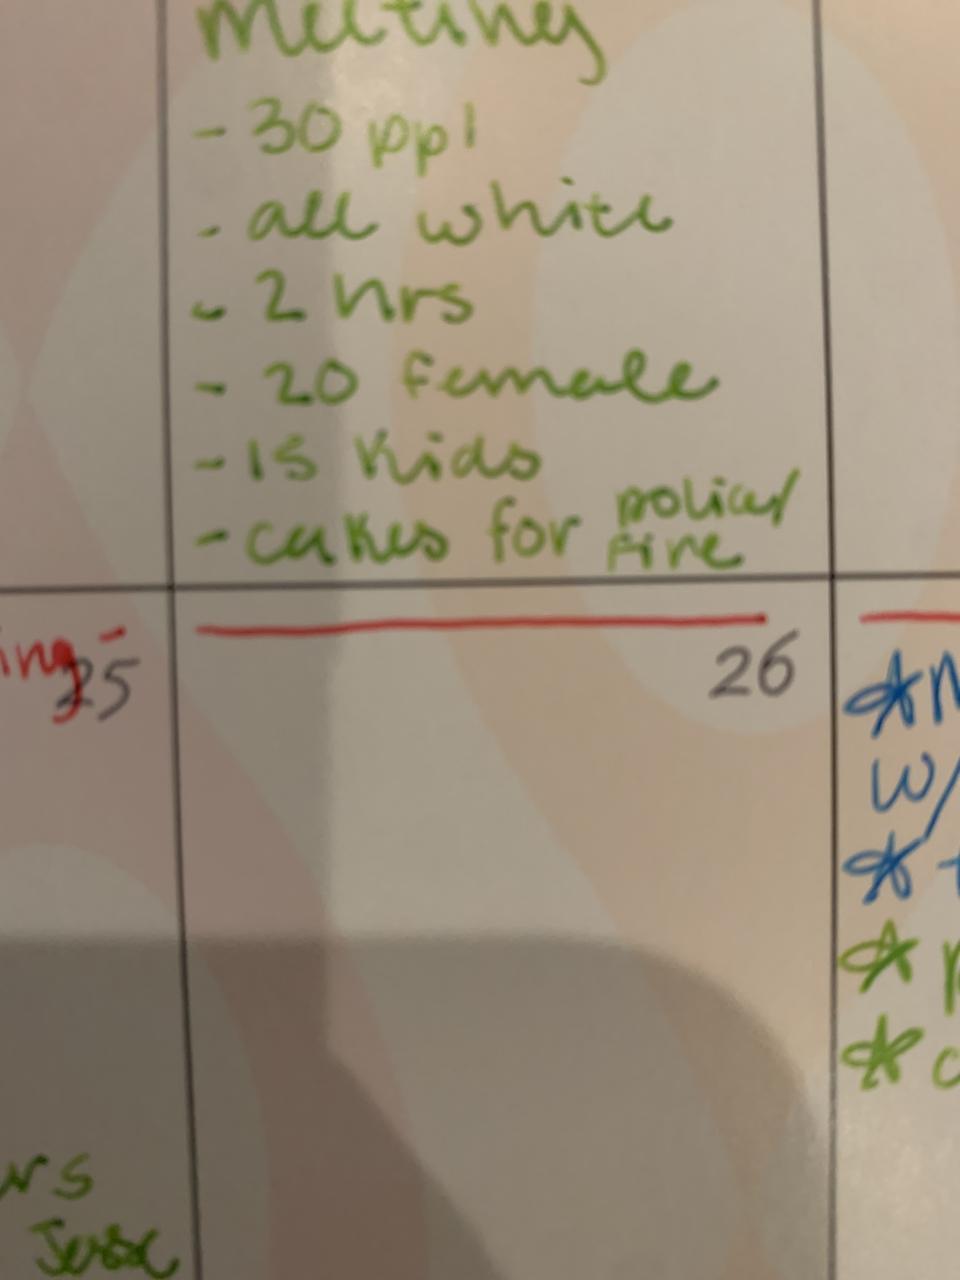 Meeting
- 30 ppl
- all white
- 2 hrs
- 20 female
- 15 kids
- cakes for police/
fire
ing -
25
26
W/